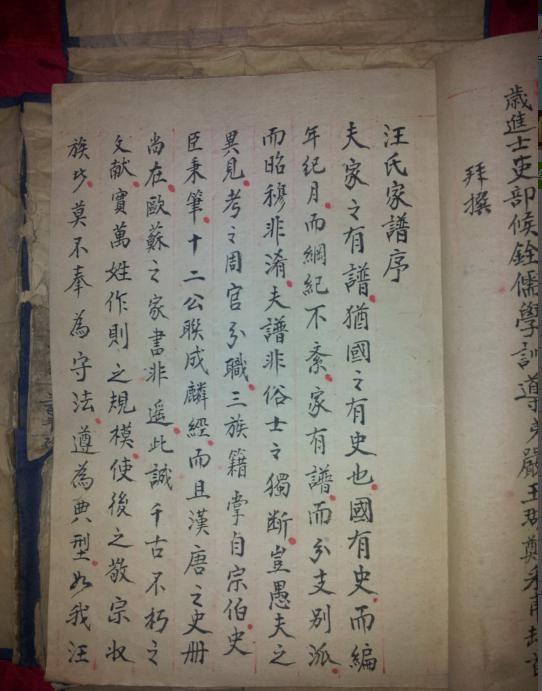 歲進士吏部候銓儒學訓導
拜撰
汪氏家譜序
夫家之有譜猶國之有史也國有史而編
年紀月而綱紀不紊家有譜而分支別派
而昭穆非淆夫譜非俗士之獨斷豈愚夫之
異見考之周官分職三族籍掌自宗伯史
臣秉筆十二公聯成麟經而且漢唐之史册
尚在歐蘇之家書非遥此誠千古不朽之
文献實萬姓作則之規模使後之敬宗収
族步莫不奉為守法遵為典型如我汪